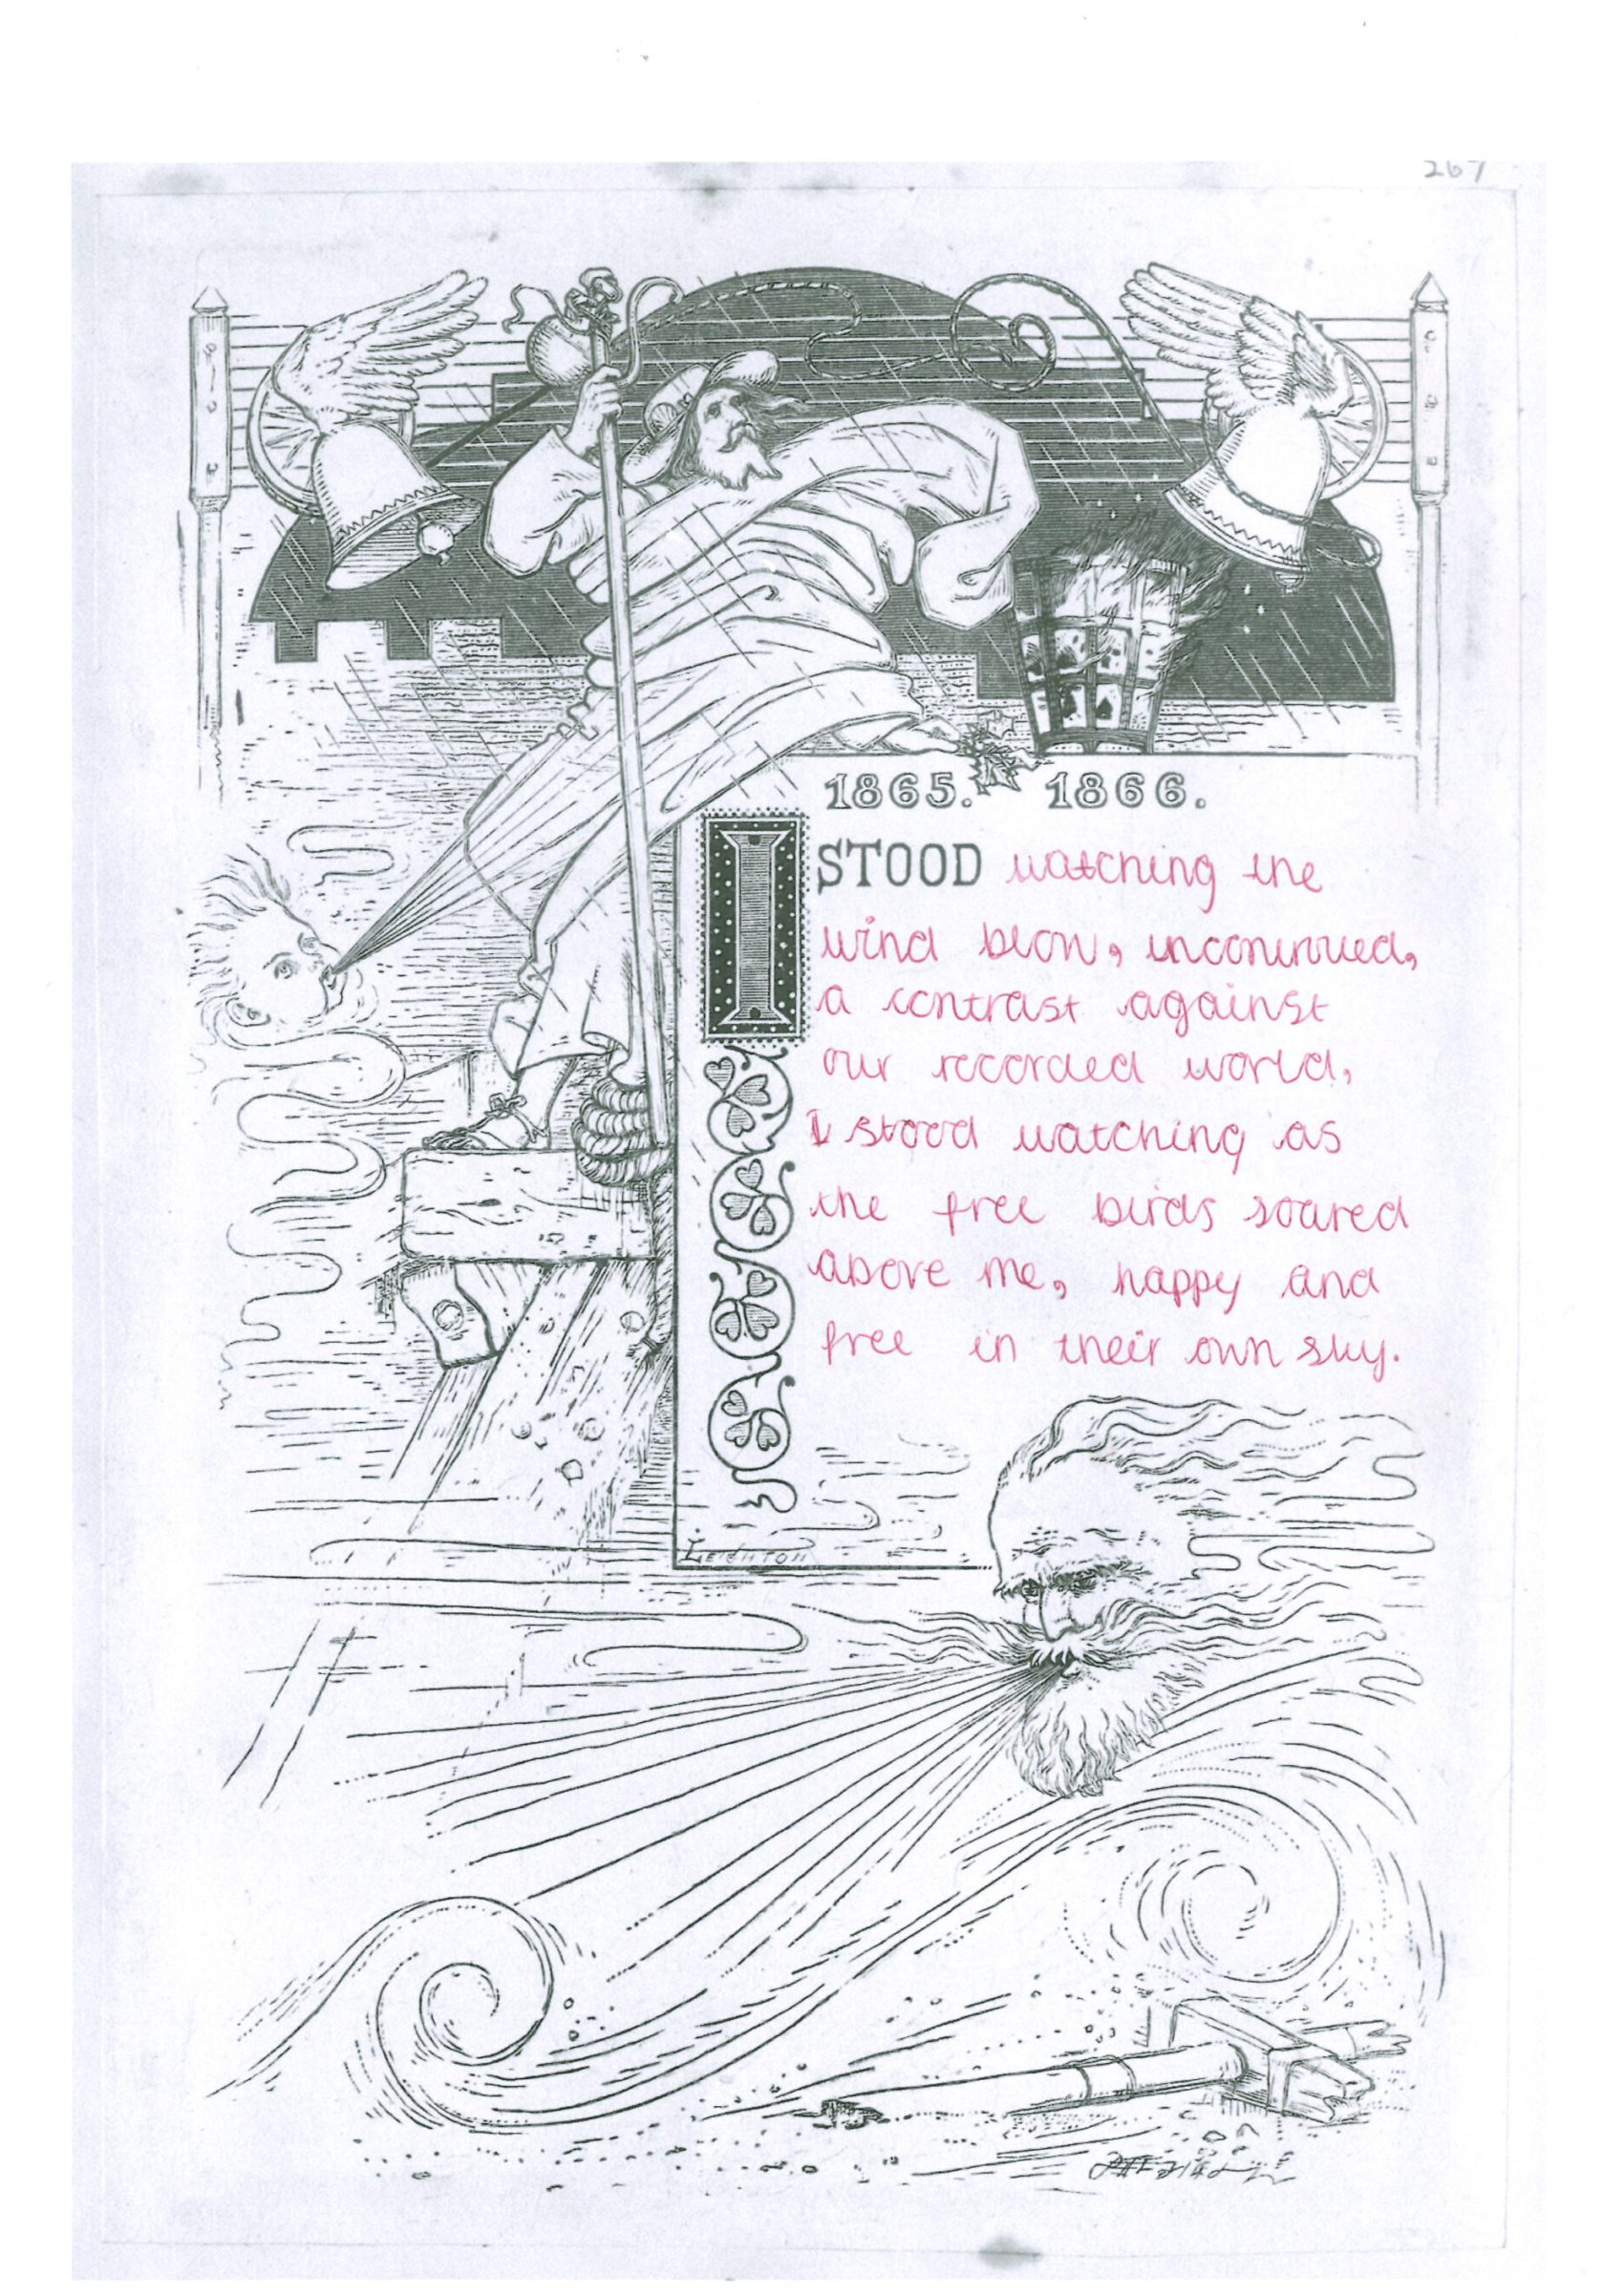 267
1865. 1866.
I STOOD watching the
wind blow, incontroued,
a contrast against
our recorded world,
I stood watching as
the free birds soared
above me, happy and
free in their own sky.
LEIGHTON